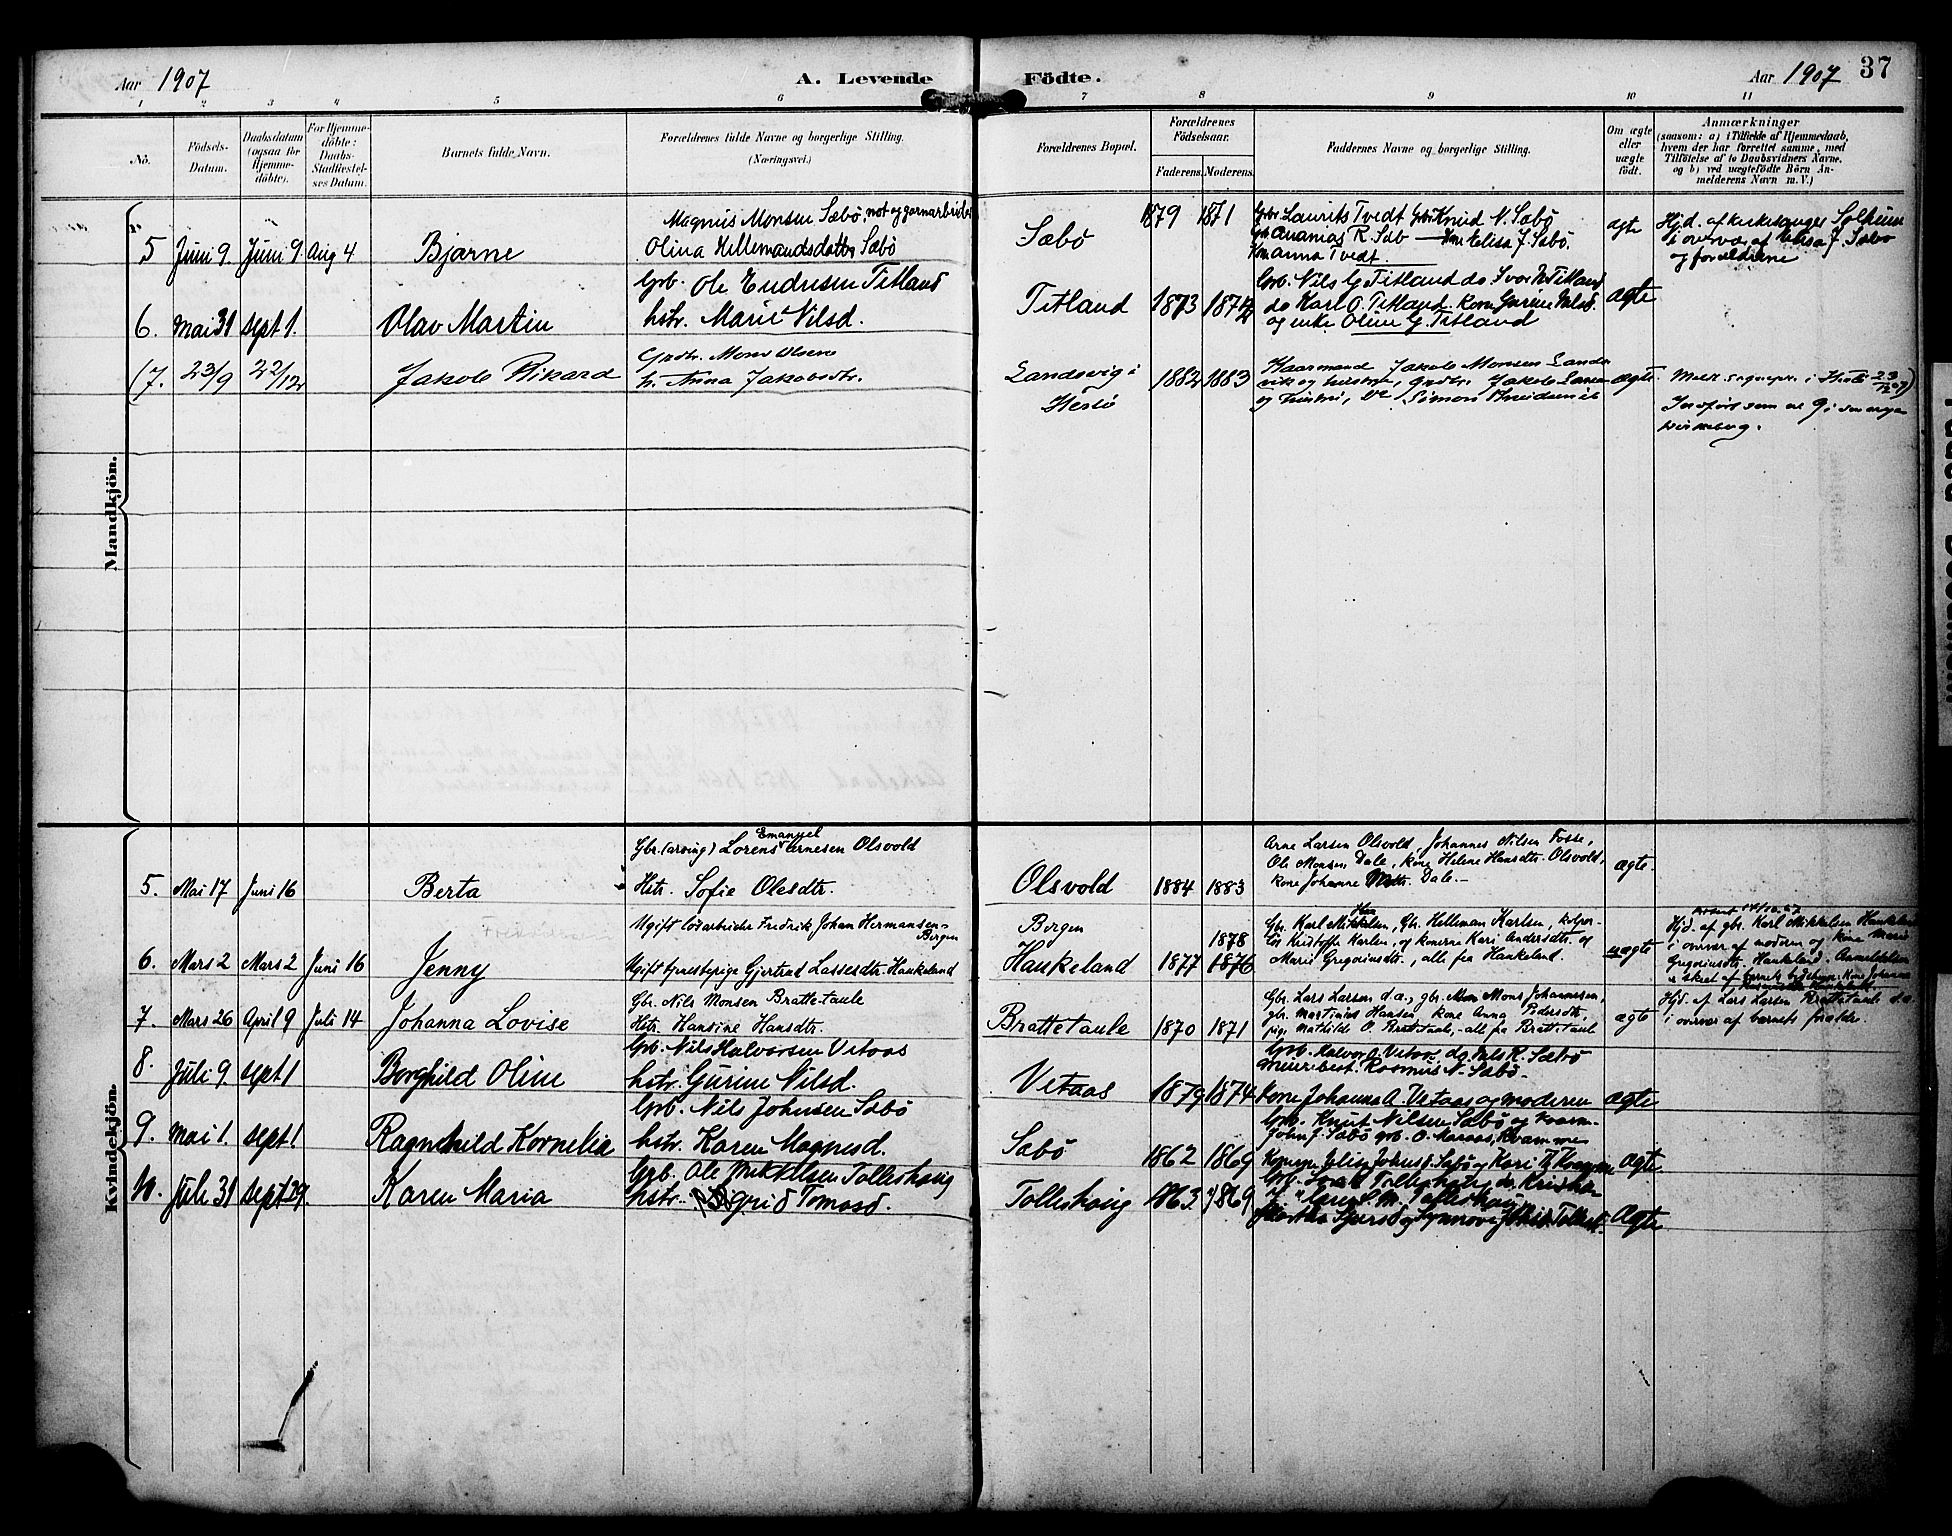 Aar 1907
A. Levende Födte.
Aar 1907
37
1 2 3 4 5 6 7 8 9 10 11
No.
Födsels-
Datum.
Daabsdatum
(ogsaa for
Hjemme-
döbte).
For Hjemme-
döbte:
Daabs-
Stadfæstel-
ses Datum.
Barnets fulde Navn.
Forældrenes fulde Navne og borgerlige Stilling.
(Næringsvei.)
Forældrenes Bopæl.
Forældrenes
Födselsaar.
Faderens. Moderens.
Faddernes Navne og borgerlige Stilling.
Om ægte
eller
uægte
födt.
Anmærkninger
(saasom: a) i Tilfælde af Hjemmedaab,
hvem der har forrettet samme, med
Tilföielse af to Daabsvidners Navne,
og b) ved uægtefödte Börn An-
melderens Navn m. V.)
Mandkjön.
5 Juni 9. Juni 9. Aug 4 Bjarne
Magnus Monsen Sæbö, not og garnarbeider
Olina Hillemandsdatter Sæbö
Sæbö 1879 1871
Gbr Laurits Tvedt Gbr Knud N. Sæbö
Ananias R. Sæb Elisa J. Sæbö.
Anna Tvedt.
ægte
Hjd. af kirkesanger Solheim
i overvær af Elisa J. Sæbø
og forældrene
6. Mai 31 Sept 1. Olav Martin
Grb. Ole Endresen Titland
hstr. Marie Nilsd.
Titland 1873 1874
Grb. Nils G. Titland do Ivar N. Titland
do Karl O. Titland. Kone Gurine Nilsd.
og enke Oline G. Titland
ægte
(7. 23/9 22/12 Jakob Rikard
Grdbr. Mons Olsen
h. Anna Jakobsdtr.
Landsvig i
Herlö
1882 1883
Haarmand Jakob Monsen Lands-
vik og hustru, Grdbr. Jakob Larsen
og hustru, Simon
ægte.
Meldt sognepr. i Herlö 23/12 07)
Indfört som nr 9 i
Kirkebog.
Kvindekjön.
5. Mai 17 Juni 16 Berta
Gbr. (arving) Lorens Emanuel Arnesen Olsvold
Hstr. Sofie Olesdtr.
Olsvold 1884 1883
Arne Larsen Olsvold, Johannes Nilsen Fosse,
Ole Monsen Dale, kone Helene Hansdtr. Olsvold,
kone Johanne Dale.
ægte.
6. Mars 2 Mars 2 Juni 16 Jenny
Ugift lösarbeider Fredrik Johan Hermansen-
Bergen
Ugift tjenestepige Gjertrud Lassesdtr. Haukeland
Bergen
Haukeland 1877 1878 1876
Gbr. Karl Mikkelsen, Gbr. Helleman Karlsen, kolpor-
tör Kristoffer Karlsen, og konerne Kari Andersdtr. og
Marie Gregoriusdtr., alle fra Haukeland.
uægte
Hjd. af gbr. Karl Mikkelsen Haukeland
i overvær af moderen og kone Marie
Gregoriusdtr. Haukeland. Anmeldelsen
er skeet af barnets
7. Mars 26 April 9 Juli 14 Johanna Lovise
Gbr. Nils Monsen Brattetaule
Hstr. Hansine Hansdtr.
Brattetaule 1870 1871
Gbr. Lars Larsen d.a., gbr. Mons Johannessen,
gbr. Martinius Hansen, kone Anna Pedersdtr.,
pige Mathilde O. Brattetaule, - alle fra Brattetaule
ægte
Hjd. af Lars Larsen Brattetaule d.a.
i overvær af barnets forældre.
8. Juli 9. Sept 1 Borghild Oline
Grb. Nils Halvorsen Vetaas
hstr. Gurine Nilsd.
Vetaas 1879 1874
Grb. Halvor A. Vetaas, do Nils R. Sæbö
meieribest. Rasmus N. Sæbö-
Kone Johanna A. Vetaas og moderen
ægte
9. Mai 1. Sept 1 Ragnhild Kornelia
Grb. Nils Johnsen Sæbö
hstr. Karen Magnesd.
Sæbö 1862 1869
Grb. Knut Nilsen Sæbö og
John J. Sæbö grb. O. Maraas, Kvamme
Elisa Johnsd. Sæbö og Kari
ægte
10. Juli 31 Sept 29. Karen Maria
Grb. Ole Mikkelsen Tolleshaug
hstr. Sigrid Tomasd.
Tolleshaug 1863. 1869
Ægte